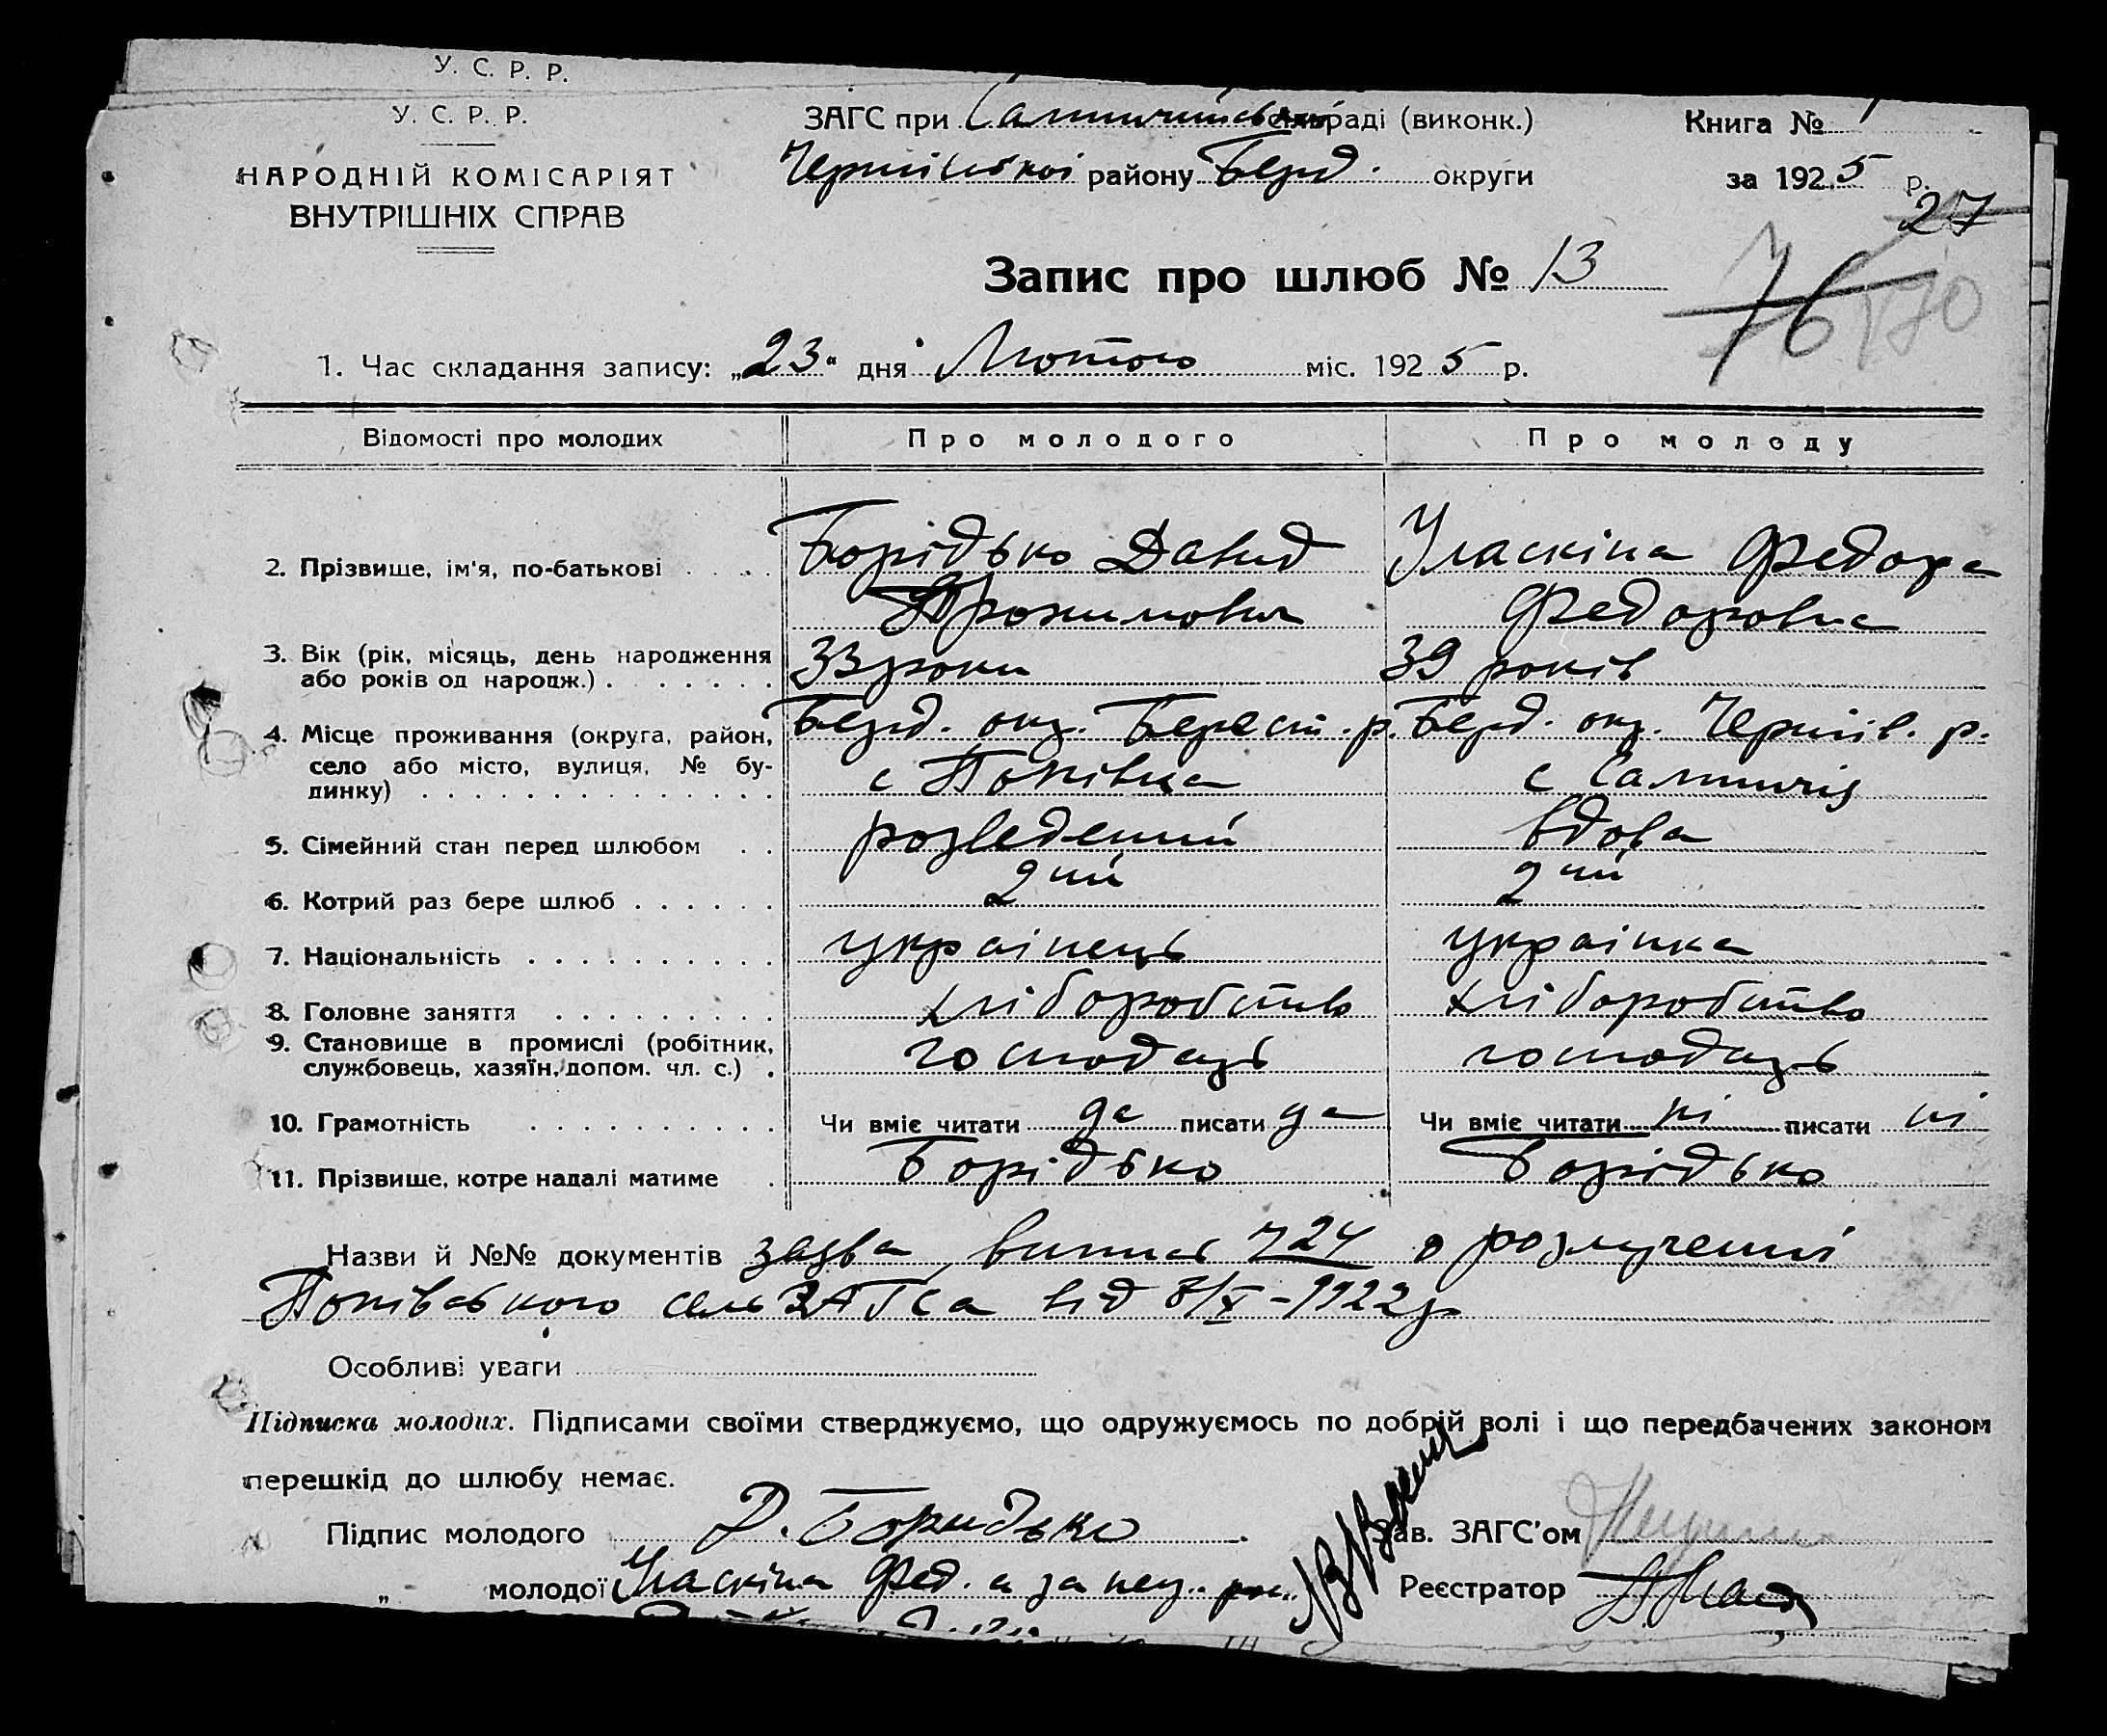 У. С. Р. Р.
У. С. Р. Р.
НАРОДНІЙ КОМІСАРІЯТ
ВНУТРІШНІХ СПРАВ
ЗАГС при раді (виконк.)
району Берд. округи
Книга № 1
за 1925 р.
27
76
Запис про шлюб № 13
1. Час складання запису: „23“ дня Лютого міс. 1925 р.
Відомості про молодих Про молодого Про молоду
2. Прізвище, ім'я, по-батькові Борідько Давид Уласкіна Федора
Трохимович Федоровна
3. Вік (рік, місяць, день народження або років од народж.) 33 роки 39 років
4. Місце проживання (округа, район, Берд. окр. Берест. р. Берд. окр. Черніг. р.
село або місто, вулиця, № бу- с Попівка с Салтичія
динку)
5. Сімейний стан перед шлюбом розведений вдова
6. Котрий раз бере шлюб 2ий 2ий
7. Національність українець українка
8. Головне заняття хліборобство хліборобство
9. Становище в промислі (робітник,
службовець, хазяїн, допом. чл. с.) господарь господарь
10. Грамотність Чи вміє читати да писати да Чи вміє читати ні писати ні
11. Прізвище, котре надалі матиме Борідько Борідько
Назви й №№ документів заява, випись 724 о розлученні
Попівського сельЗАГСа від 8/X-1922р
Особливі уваги
Підписка молодих. Підписами своїми стверджуємо, що одружуємось по добрій волі і що передбачених законом
перешкід до шлюбу немає.
Підпис молодого Д. Боридько Зав. ЗАГС'ом
„ молодої Уласкіна Фед. а за неї Реєстратор